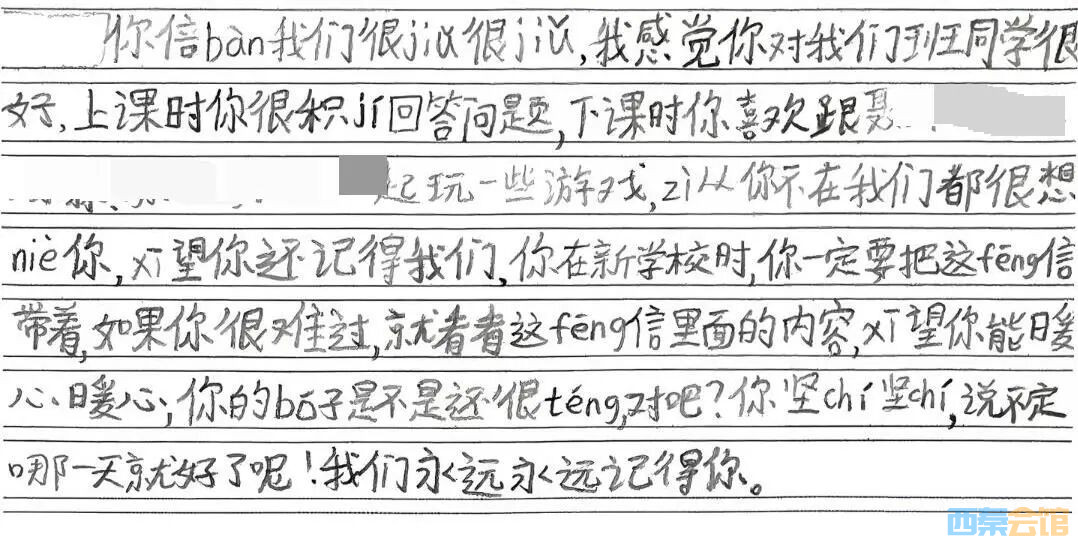 你倍bàn我们很jiǔ很jiǔ,我感觉你对我们班同学很
好,上课时你很积jí回答问题,下课时你喜欢跟聂
起玩一些游戏,zì从你不在我们都很想
niè你,xī望你还记得我们,你在新学校时,你一定要把这fēng信
带着,如果你很难过,就看看这fēng信里面的内容,xī望你能暖
心暖心,你的bó子是不是还很téng,对吧?你坚chí坚chí,说不定
哪一天就好了呢!我们永远永远记得你。
西秦会馆